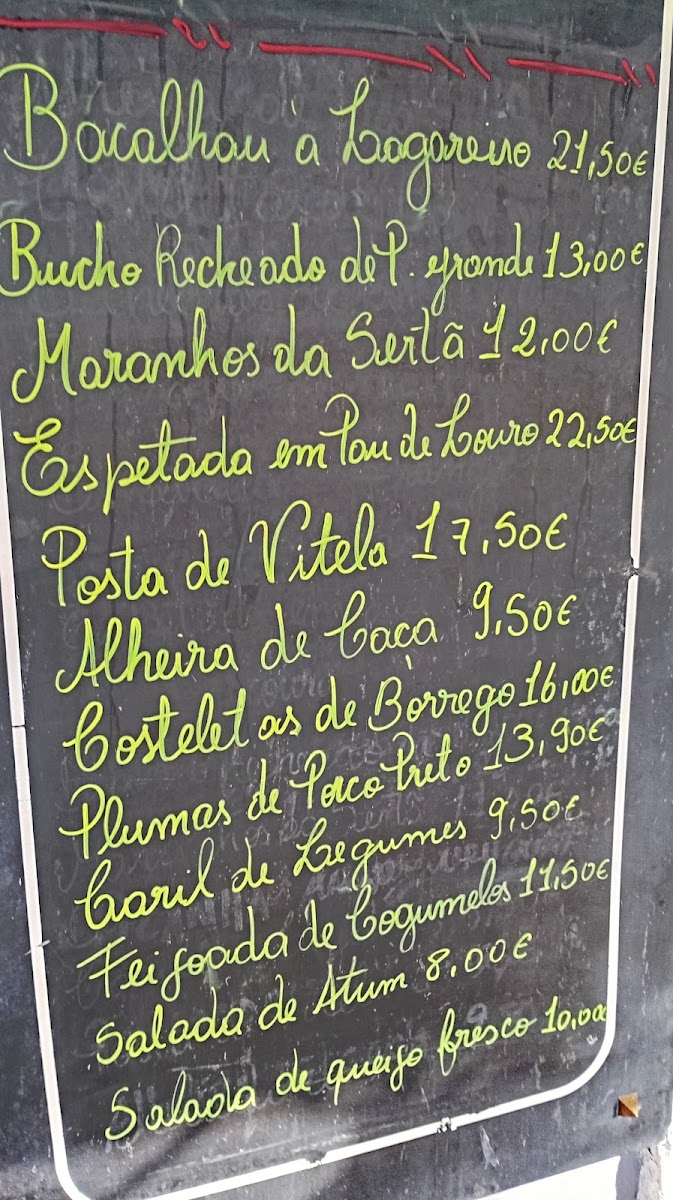 Bacalhau a Lagareiro 21,50€
Bucho Recheado de P. grande 13,00€
Maranhos da Sertã 12,00€
Espetada em Pau de Louro 22,50€
Posta de Vitela 17,50€
Alheira de Caça 9,50€
Costeletas de Borrego 16,00€
Plumas de Porco Preto 13,90€
Caril de Legumes 9,50€
Feijoada de Cogumelos 11,50€
Salada de Atum 8,00€
Salada de queijo fresco 10,00€